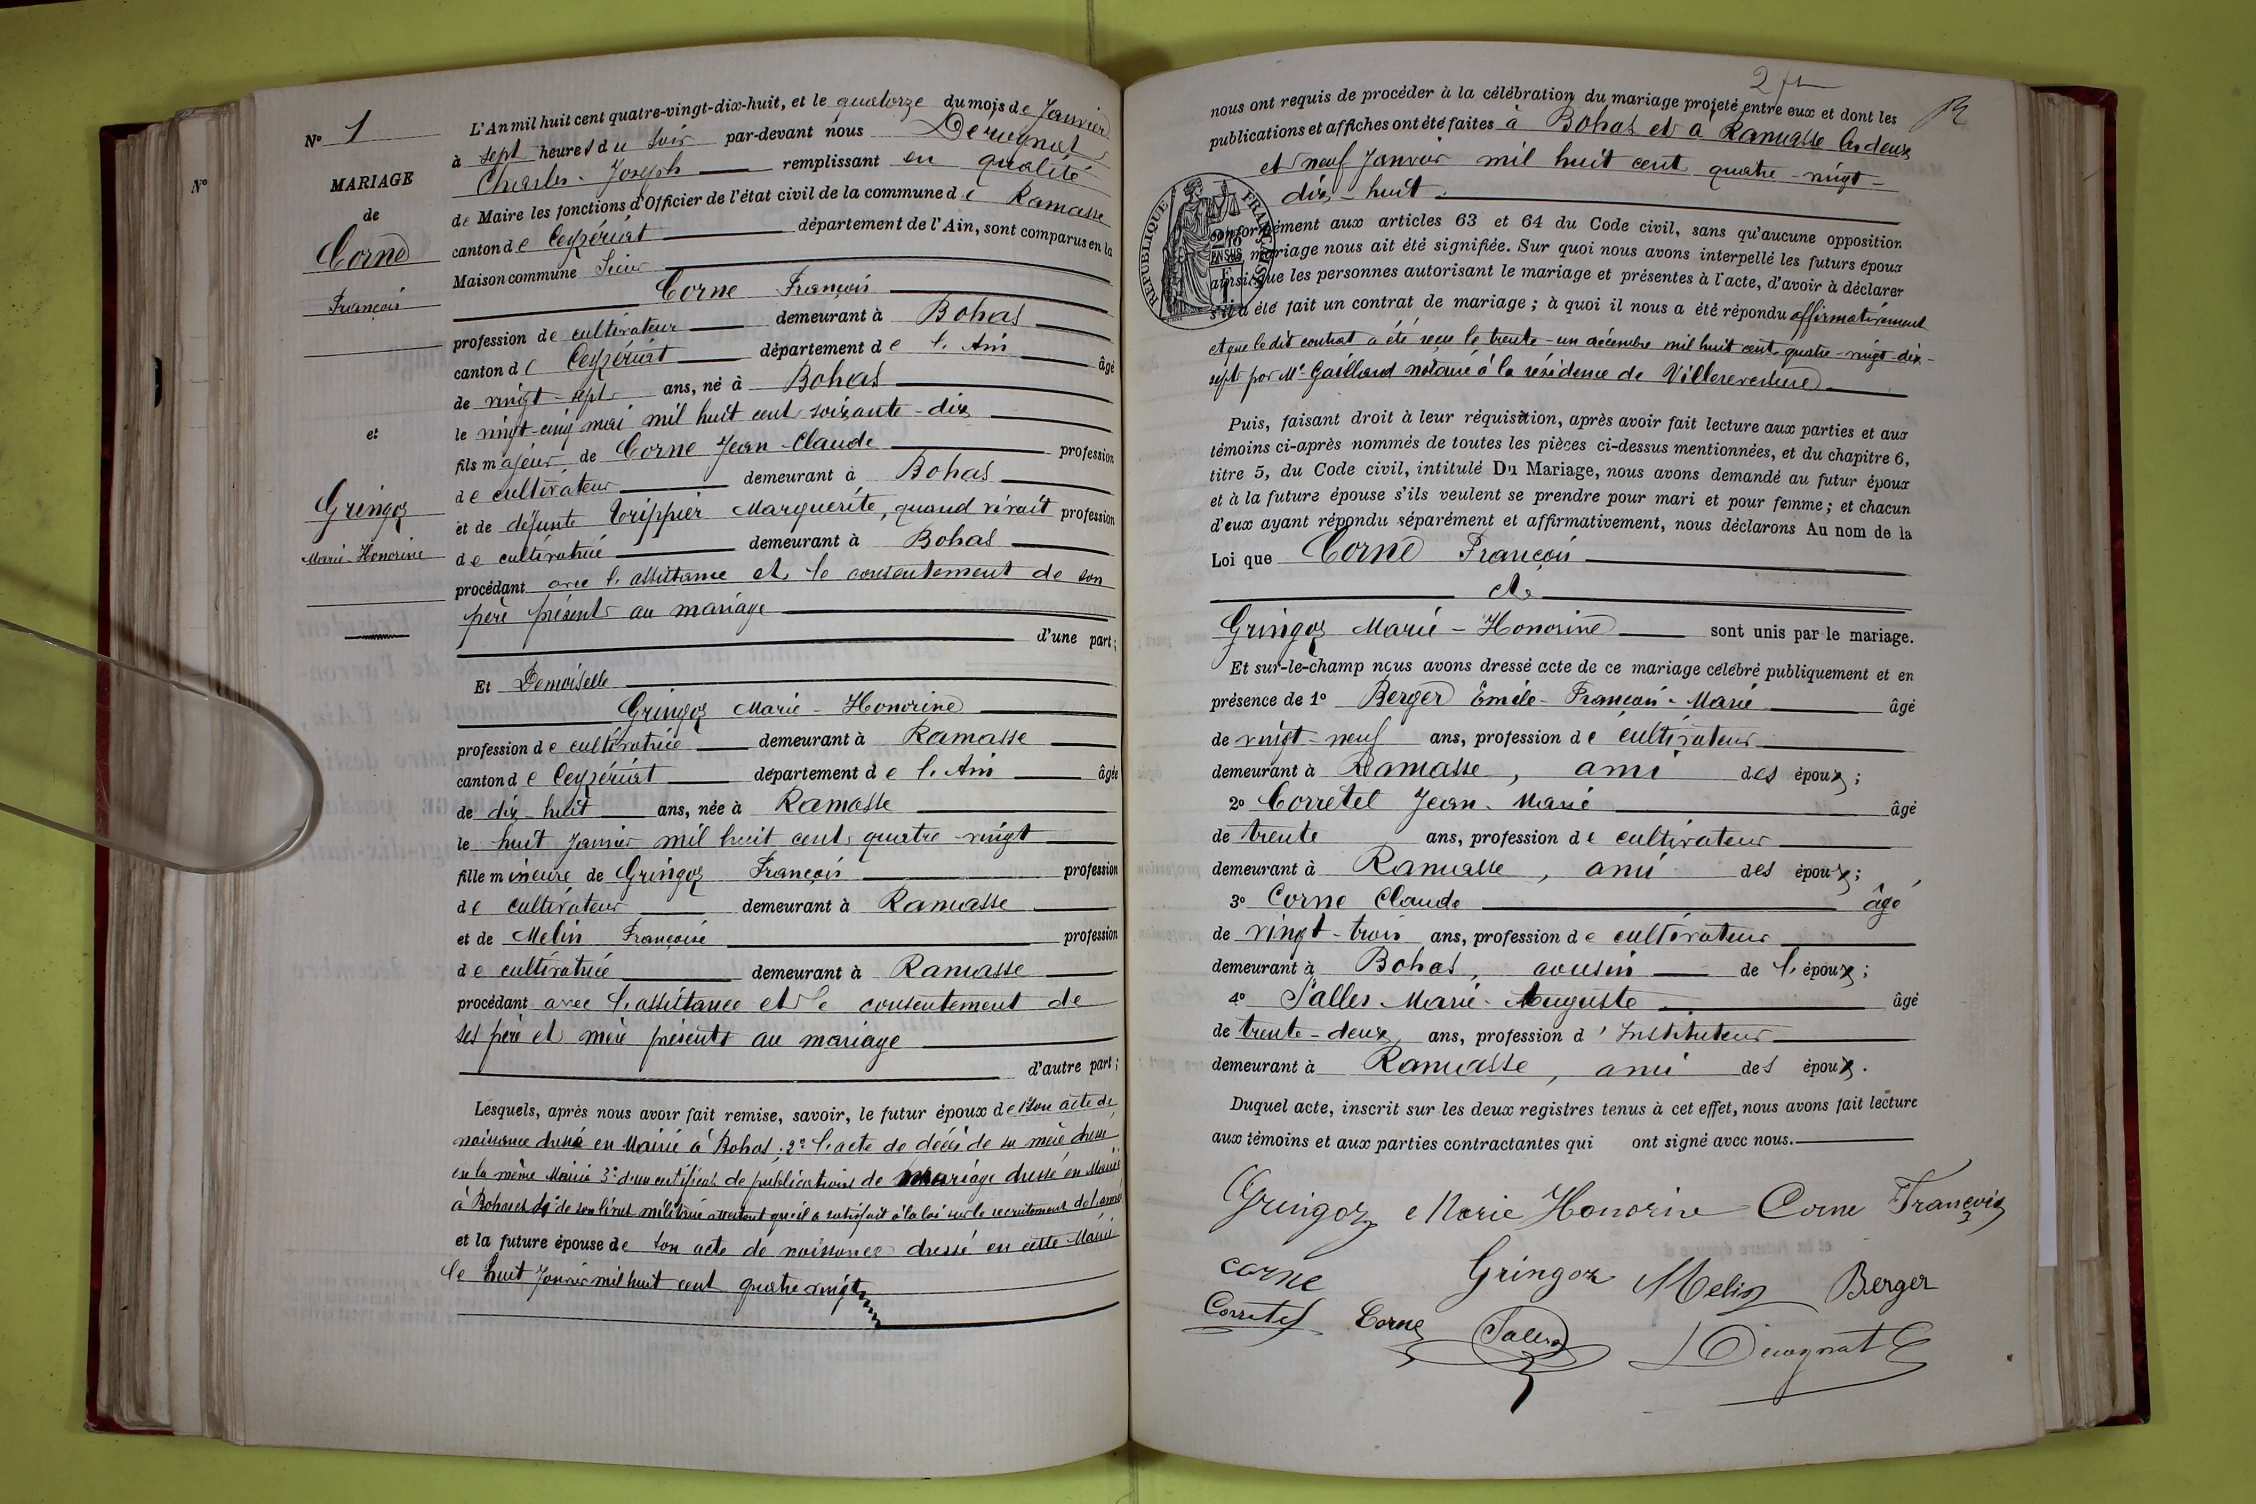 N° 1
MARIAGE
de
Corne
François
et
Gringoz
Marie-Honorine
N°
L'An mil huit cent quatre-vingt-dix-huit, et le quatorze du mois de Janvier
à sept heures du soir par-devant nous Derognat
Charles-Joseph remplissant en qualité
de Maire les fonctions d'Officier de l'état civil de la commune de Ramasse
canton de Ceyzériat département de l'Ain, sont comparus en la
Maison commune Sieur
Corne François
profession de cultivateur demeurant à Bohas
canton de Ceyzériat département de l'Ain âgé
de vingt-sept ans, né à Bohas
le vingt-cinq mai mil huit cent soixante-dix
fils majeur de Corne Jean-Claude profession
de cultivateur demeurant à Bohas
et de défunte Trippier Marguerite, quand vivait profession
de cultivatrice demeurant à Bohas
procédant avec l'assistance et le consentement de son
père présent au mariage
d'une part;
Et Demoiselle
Gringoz Marie-Honorine
profession de cultivatrice demeurant à Ramasse
canton de Ceyzériat département de l'Ain âgée
de dix-huit ans, née à Ramasse
le huit janvier mil huit cent quatre-vingt
fille mineure de Gringoz François profession
de cultivateur demeurant à Ramasse
et de Melin Françoise profession
de cultivatrice demeurant à Ramasse
procédant avec l'assistance et le consentement de
ses père et mère présents au mariage
d'autre part;
Lesquels, après nous avoir fait remise, savoir, le futur époux de 1° son acte de
naissance dressé en Mairie à Bohas; 2° l'acte de décès de sa mère dressé
en la même Mairie 3° d'un certificat de publications de mariage dressé en Mairie
à Bohas et 4° de son livret militaire attestant qu'il a satisfait à la loi sur le recrutement de l'armée
et la future épouse de son acte de naissance dressé en cette Mairie
le huit Janvier mil huit cent quatre vingt
2
nous ont requis de procéder à la célébration du mariage projeté entre eux et dont les
publications et affiches ont été faites à Bohas et à Ramasse les deux
et neuf Janvier mil huit cent quatre-vingt-
dix-huit.
RÉPUBLIQUE FRANÇAISE
conformément aux articles 63 et 64 du Code civil, sans qu'aucune opposition
mariage nous ait été signifiée. Sur quoi nous avons interpellé les futurs époux
ainsi que les personnes autorisant le mariage et présentes à l'acte, d'avoir à déclarer
s'il a été fait un contrat de mariage; à quoi il nous a été répondu affirmativement
et que le dit contrat a été reçu le trente-un décembre mil huit cent quatre-vingt-dix-
sept par Me Gaillard notaire à la résidence de Villereversure
Puis, faisant droit à leur réquisition, après avoir fait lecture aux parties et aux
témoins ci-après nommés de toutes les pièces ci-dessus mentionnées, et du chapitre 6,
titre 5, du Code civil, intitulé Du Mariage, nous avons demandé au futur époux
et à la future épouse s'ils veulent se prendre pour mari et pour femme; et chacun
d'eux ayant répondu séparément et affirmativement, nous déclarons Au nom de la
Loi que Corne François
et
Gringoz Marie-Honorine sont unis par le mariage.
Et sur-le-champ nous avons dressé acte de ce mariage célébré publiquement et en
présence de 1° Berger Emile-François-Marie âgé
de vingt-neuf ans, profession de cultivateur
demeurant à Ramasse, ami des époux;
2° Corretel Jean-Marie âgé
de trente ans, profession de cultivateur
demeurant à Ramasse, ami des époux;
3° Corne Claude âgé
de vingt-trois ans, profession de cultivateur
demeurant à Bohas, cousin de l'époux;
4° Salles Marie-Auguste âgé
de trente-deux ans, profession d'Instituteur
demeurant à Ramasse, ami des époux.
Duquel acte, inscrit sur les deux registres tenus à cet effet, nous avons fait lecture
aux témoins et aux parties contractantes qui ont signé avec nous.
Gringoz Marie Honorine Corne François
corne Gringoz Melin Berger
Corretel Corne Salles Derognat